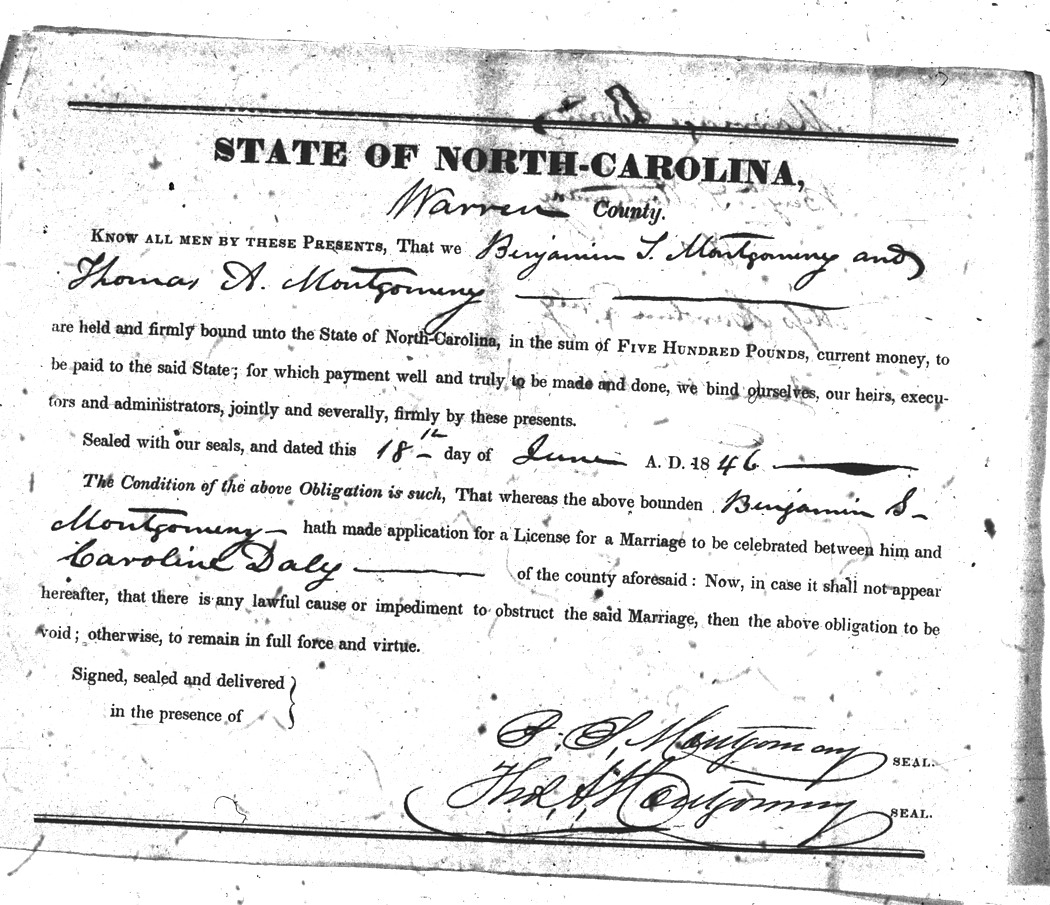 STATE OF NORTH-CAROLINA,
Warren County.
KNOW ALL MEN BY THESE PRESENTS, That we Benjamin S. Montgomery and
Thomas A. Montgomery
are held and firmly bound unto the State of North-Carolina, in the sum of FIVE HUNDRED POUNDS, current money, to
be paid to the said State; for which payment well and truly to be made and done, we bind ourselves, our heirs, execu-
tors and administrators, jointly and severally, firmly by these presents.
Sealed with our seals, and dated this 18th day of June A. D. 1846
The Condition of the above Obligation is such, That whereas the above bounden Benjamin S.
Montgomery hath made application for a License for a Marriage to be celebrated between him and
Caroline Daly of the county aforesaid: Now, in case it shall not appear
hereafter, that there is any lawful cause or impediment to obstruct the said Marriage, then the above obligation to be
void; otherwise, to remain in full force and virtue.
Signed, sealed and delivered
in the presence of
B. S. Montgomery SEAL.
Thos. A. Montgomery SEAL.